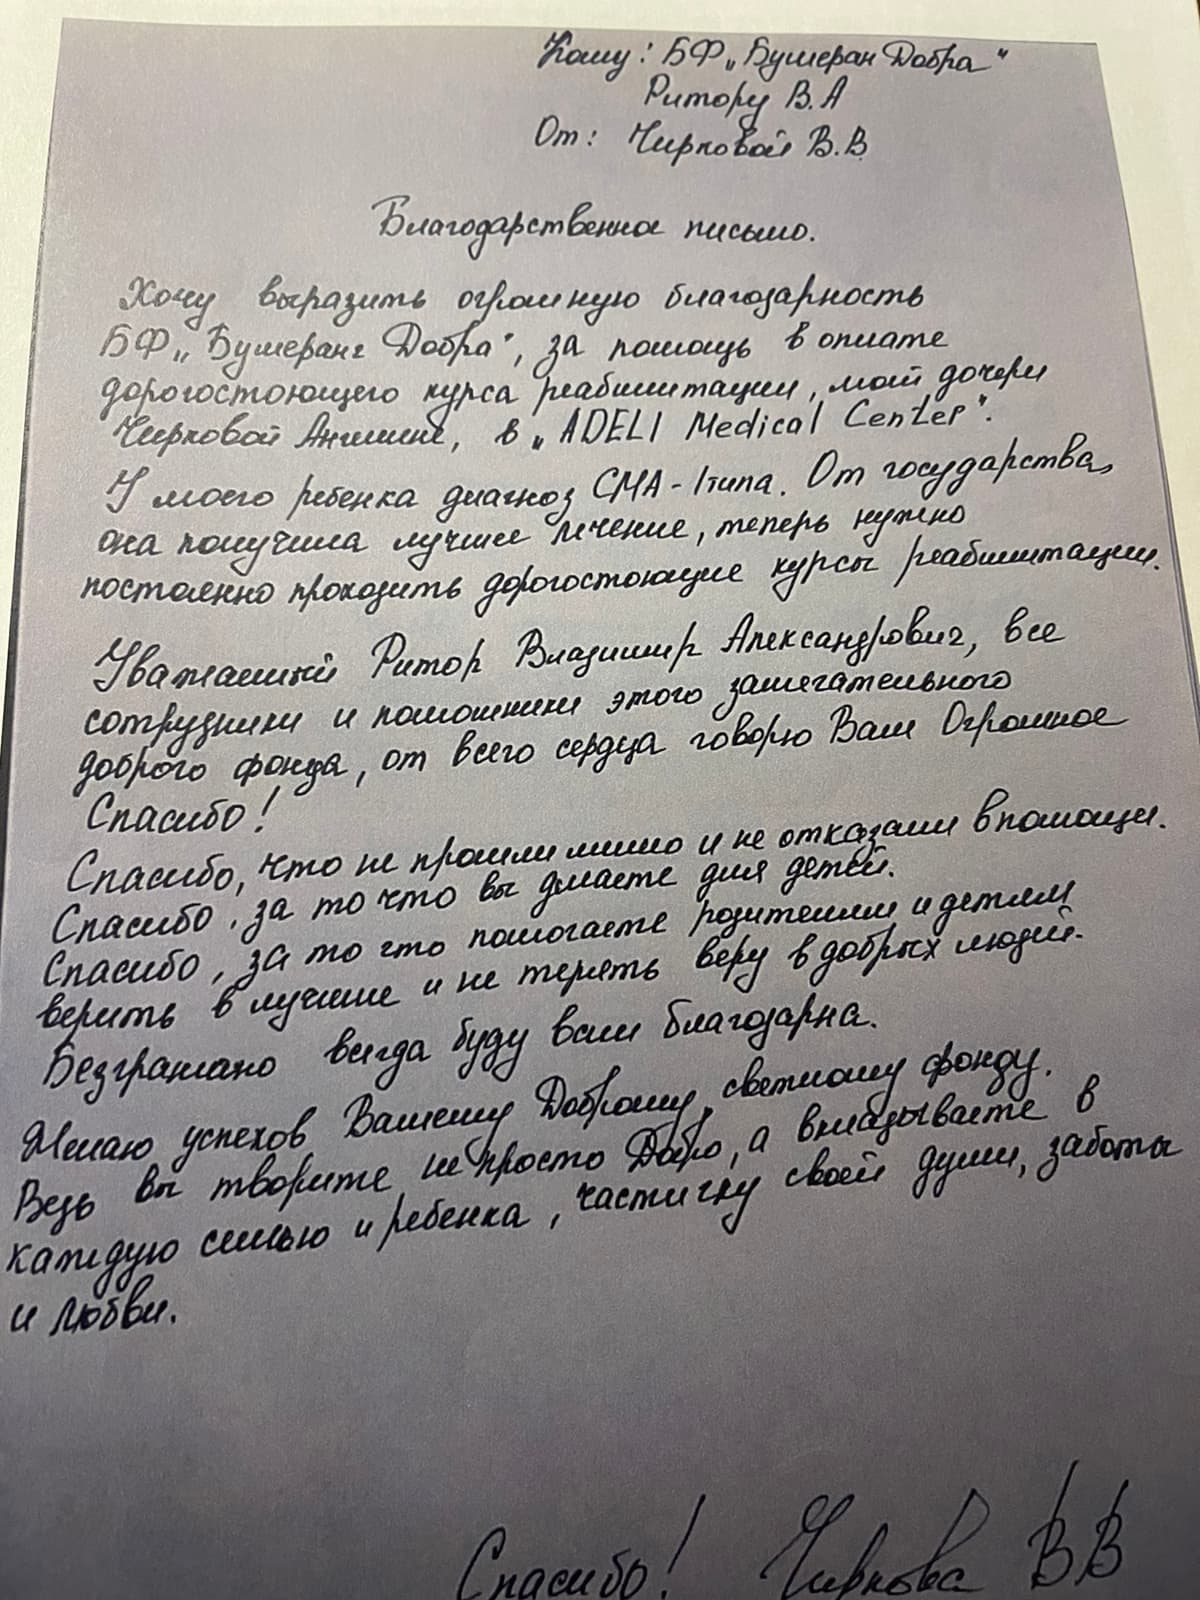 Кому: БФ „Бумеран Добра"
Ритору В.А
От: Чирковой В.В
Благодарственное письмо.
Хочу выразить огромную благодарность
БФ „Бумеранг Добра", за помощь в оплате
дорогостоющего курса реабилитации, моей дочери
Чирковой Ангелине, в „ADELI Medical Center".
У моего ребенка диагноз СМА-1типа. От государства,
она получила лучшее лечение, теперь нужно
постоянно проходить дорогостоющие курсы реабилитации.
Уважаемый Ритор Владимир Александрович, все
сотрудники и помошники этого замечательного
доброго фонда, от всего сердца говорю Вам Огромное
Спасибо!
Спасибо, что не прошли мимо и не отказали в помощи.
Спасибо, за то что вы делаете для детей.
Спасибо, за то что помогаете родителям и детям
верить в лучшие и не терять веру в добрых людей.
Безгранично всегда буду вам благодарна.
Желаю успехов Вашему Доброму, светлому фонду.
Ведь вы творите не просто Добро, а вкладываете в
каждую семью и ребенка, частичку своей души, заботы
и любви.
Спасибо! Чиркова ВВ